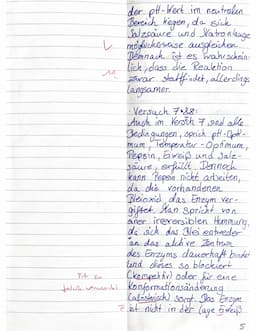 der pH-Wert im neutralen
Bereich liegen, da sich
Salzsäure und Natronlauge
möglicherweise ausgleichen.
Demnach ist es wahrschein-
lich, dass die Reaktion
zwar stattfindet, allerdings
langsamer.
Versuch 7+8:
Auch im Versuch 7 sind alle
Bedingungen, sprich pH-Opti-
mum, Temperatur-Optimum,
Pepsin, Eiweiß und Salz-
säure, erfüllt. Dennoch
kann Pepsin nicht arbeiten,
da die vorhandenen
Bleioxid, das Enzym ver-
giftet. Man spricht von
einer irreversiblen Hemmung,
da sich das Blei entweder
an das aktive Zentrum
des Enzyms dauerhaft bindet
und dieses so blockiert
(kompetitiv) oder für eine
Konformationsänderung
(allosterisch) sorgt. Das Enzym
ist nicht in der Lage Eiweiß
5